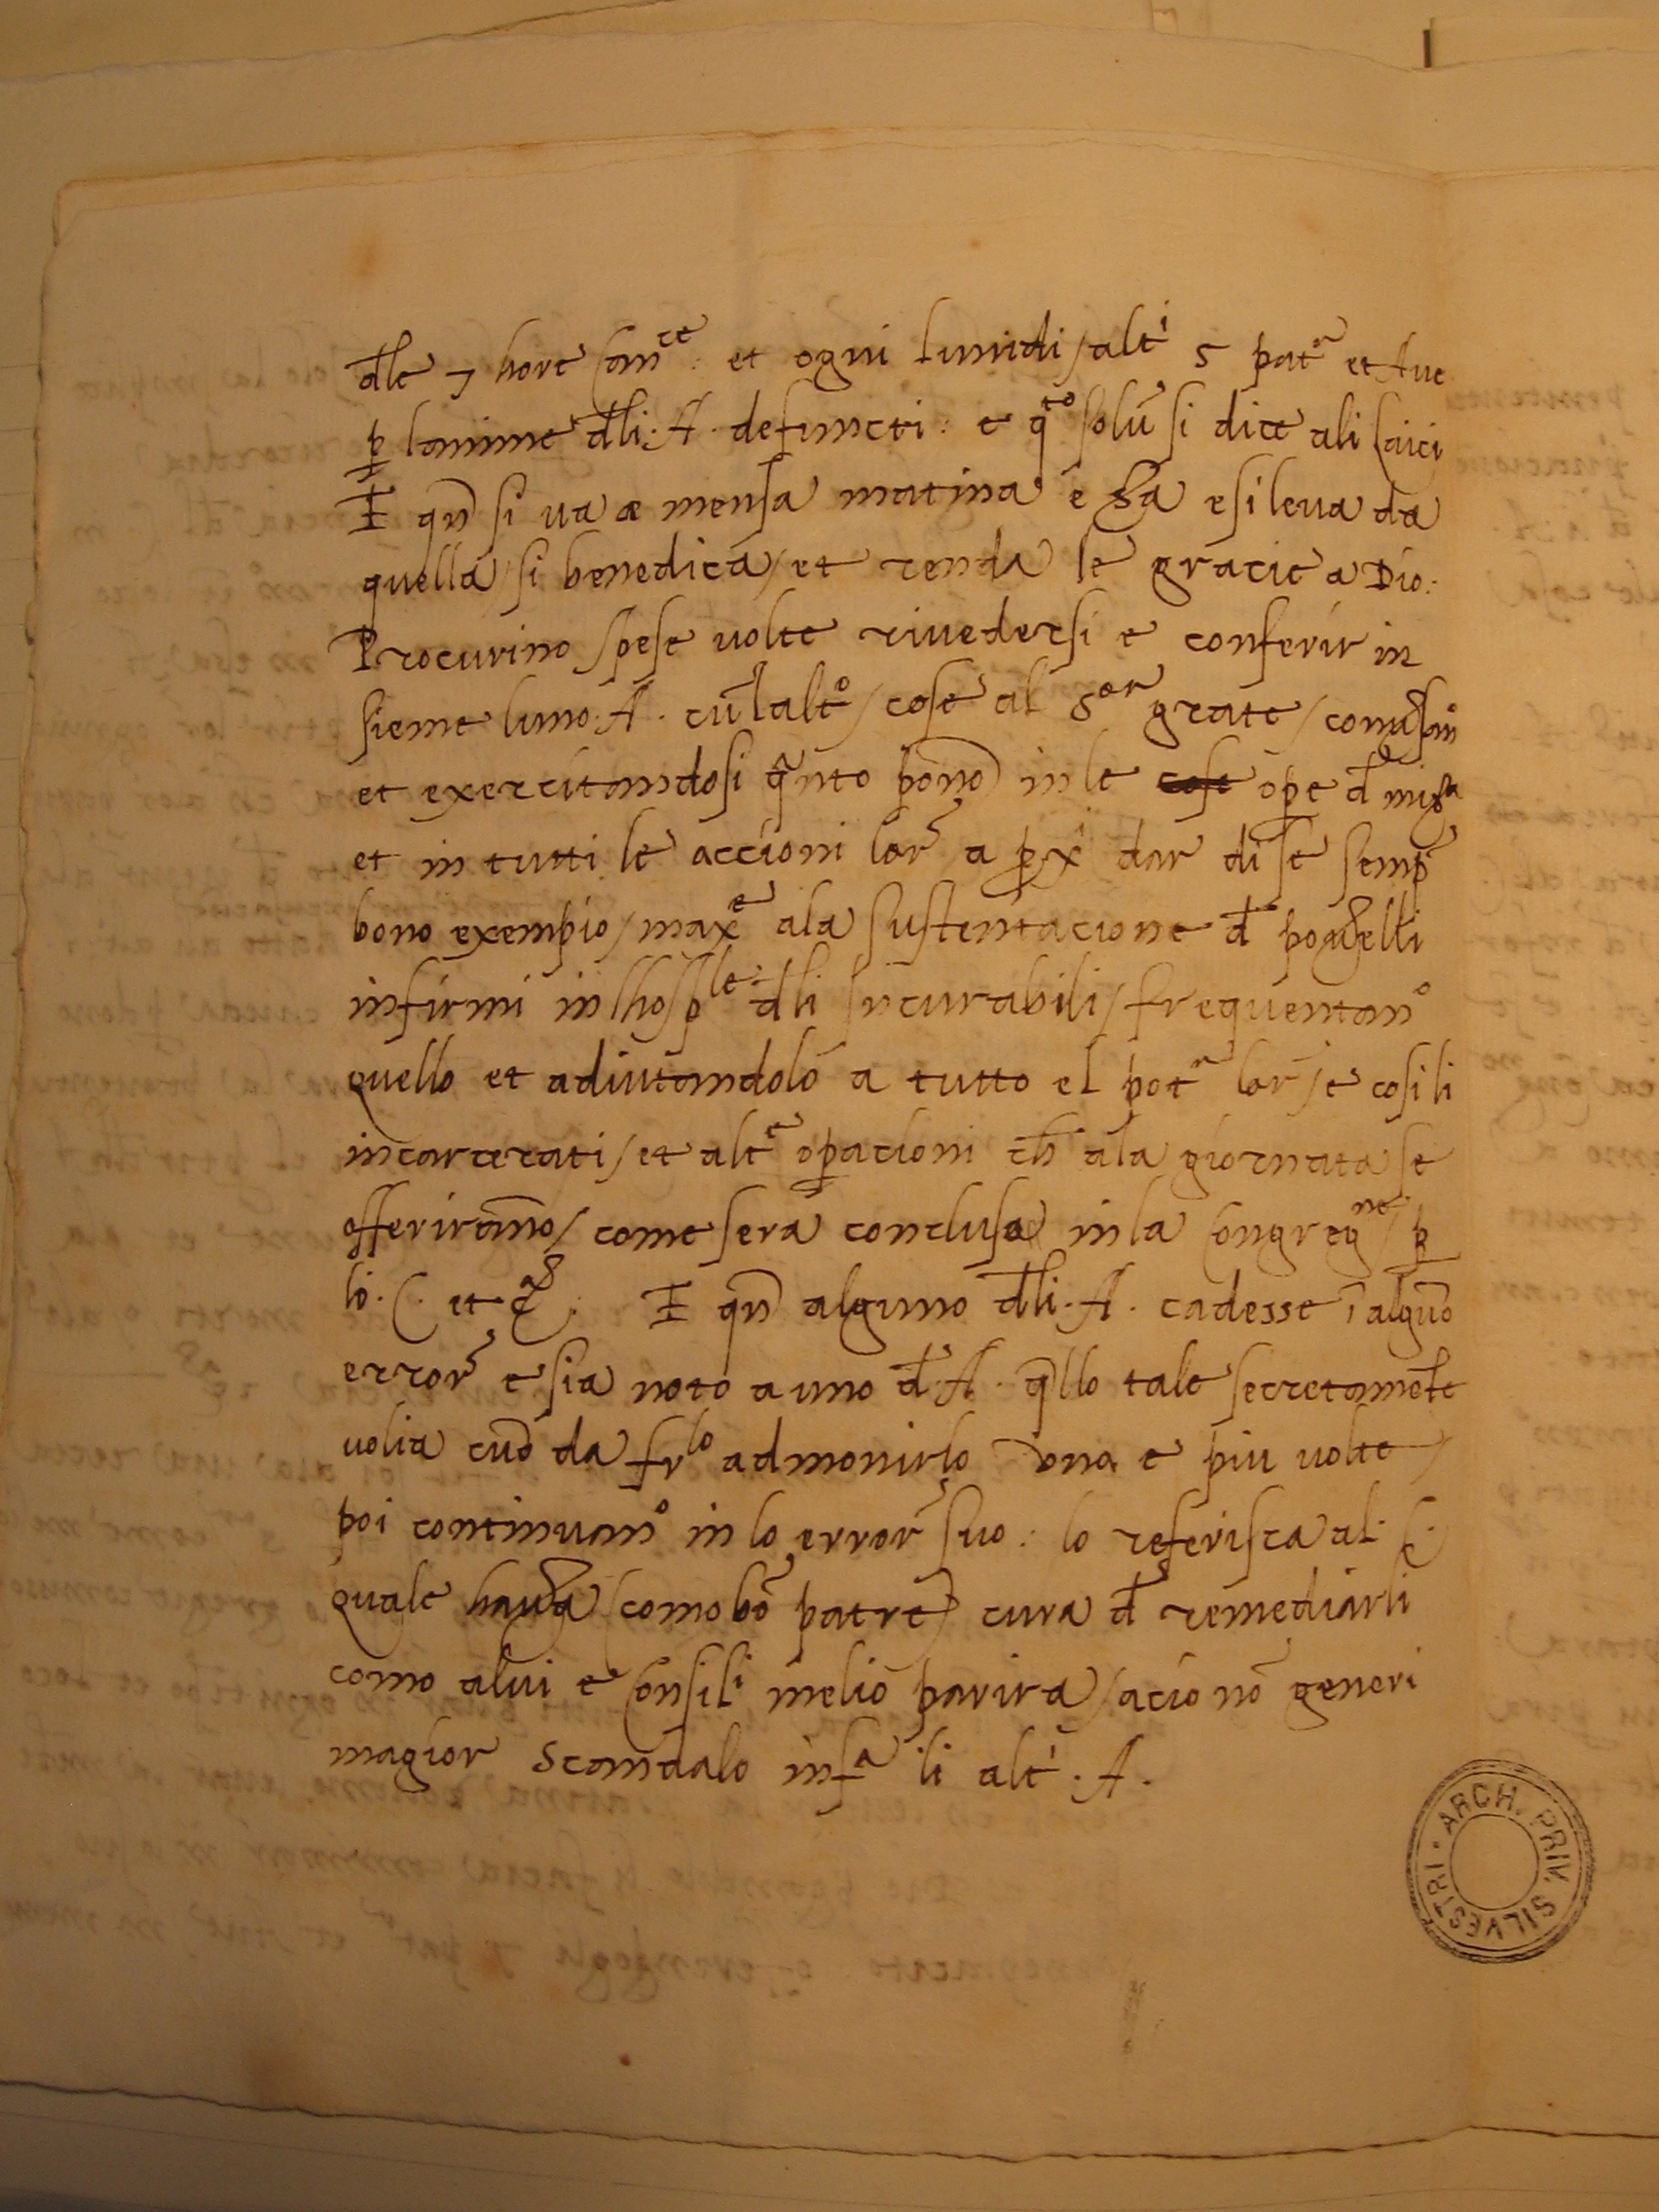 d̄le 7 hore can^ce: et ogni lunidi / alt^i 5 pat^r et Aue
ꝑ lanime d̄li. A. defuncti: e q^to solū si dice ali laici
E qn̄ si ua a mensa matina e s̄a e si leua da
quella / si benedica / et renda le gracie a Dio:
Procurino spese uolte riuedersi e conferir in
sieme luno. A. cū lalt^o / cose al S^or grate /
et exercitandosi q̄nto pōno in le cose oꝑe d̄ mis^a
et in tutti le accioni lor^e a ꝑx^i dar di se semp^e
bono exempio / max^e ala sustentacione d̄ pouelli
infirmi in lhosp^le d̄li Incurabili / frequentan^o
quello et adiutandolo a tutto el pot^r lor / e cosi li
incarcerati / et alt^e oꝑacioni ch̄ ala giornata se
offeriranno / come sera conclusa in la Congreg^ne / ꝑ
lo. C. et : E qn̄ alguno d̄li. A. cadesse ī alguō
error^e e sia noto a uno d̄. A. q̄llo tale secretamēte
uolia cuō da fr^lo admonirlo una e piu uolte /
poi continuan^o in lo error^e suo: lo referisca al. C.
quale hauera (como bō patre) cura d̄ remediarli
como alui e Consil^i melio parira / acio nō generi
magior scandalo infr^a li alt^i. A.
ARCH. PRIV. SILVESTRI